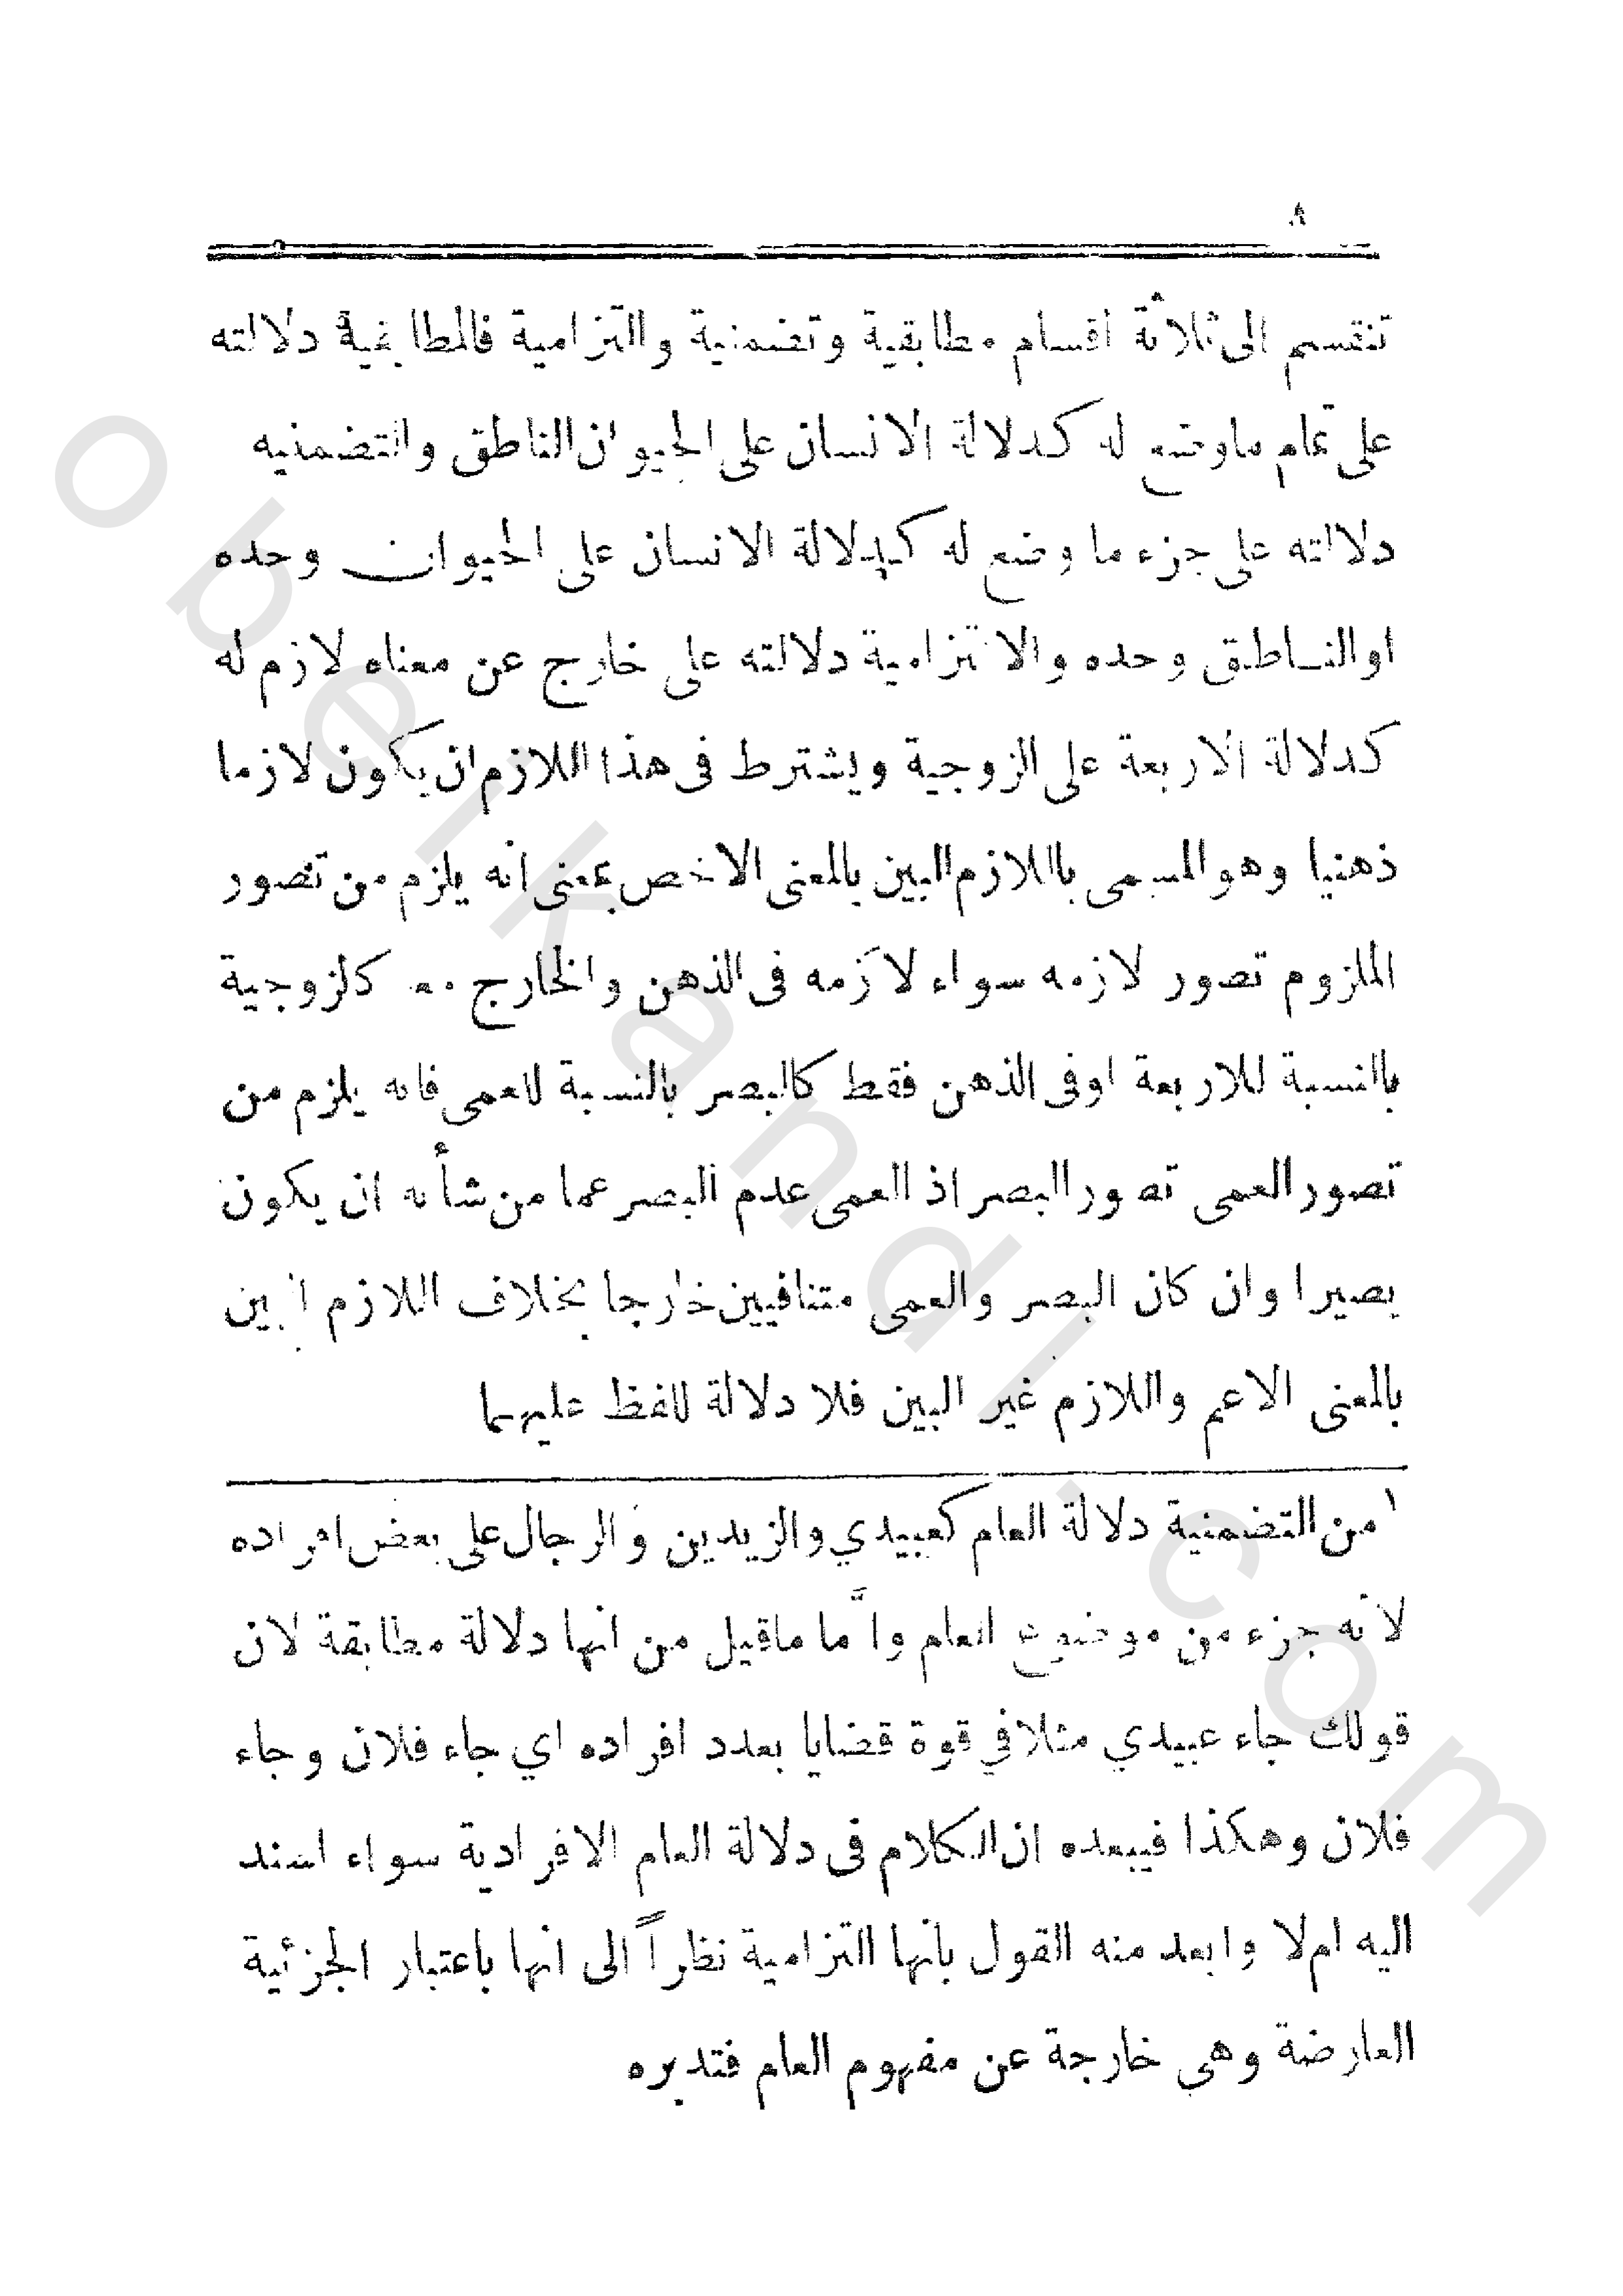 ٨
تنقسم الى ثلاثة اقسام مطابقية وتضمنية والتزامية فالمطابقية دلالته
على تمام ماوضع له كدلالة الانسان على الحيوان الناطق والتضمنيه
دلالته على جزء ما وضع له كدلالة الانسان على الحيوان وحده
او الناطق وحده والالتزامية دلالته على خارج عن معناه لازم له
كدلالة الاربعة على الزوجية ويشترط فى هذا اللازم ان يكون لازما
ذهنيا وهو المسمى باللازم البين بالمعنى الاخص بمعنى انه يلزم من تصور
الملزوم تصور لازمه سواء لازمه فى الذهن والخارج معه كالزوجية
بالنسبة للاربعة او فى الذهن فقط كالبصر بالنسبة للعمى فانه يلزم من
تصور العمى تصور البصر اذ العمى عدم البصر عما من شأنه ان يكون
بصيرا وان كان البصر والعمى متنافيين خارجا بخلاف اللازم البين
بالمعنى الاعم واللازم غير البين فلا دلالة للفظ عليهما
١ من التضمنية دلالة العام كعبيدي والزيدين والرجال على بعض افراده
لانه جزء من موضوع العام وأما ماقيل من انها دلالة مطابقة لان
قولك جاء عبيدي مثلا في قوة قضايا بعدد افراده اي جاء فلان وجاء
فلان وهكذا فيبعده ان الكلام فى دلالة العام الافرادية سواء اسند
اليه ام لا وابعد منه القول بانها التزامية نظراً الى انها باعتبار الجزئية
العارضة وهي خارجة عن مفهوم العام فتدبره
oberkandl.com